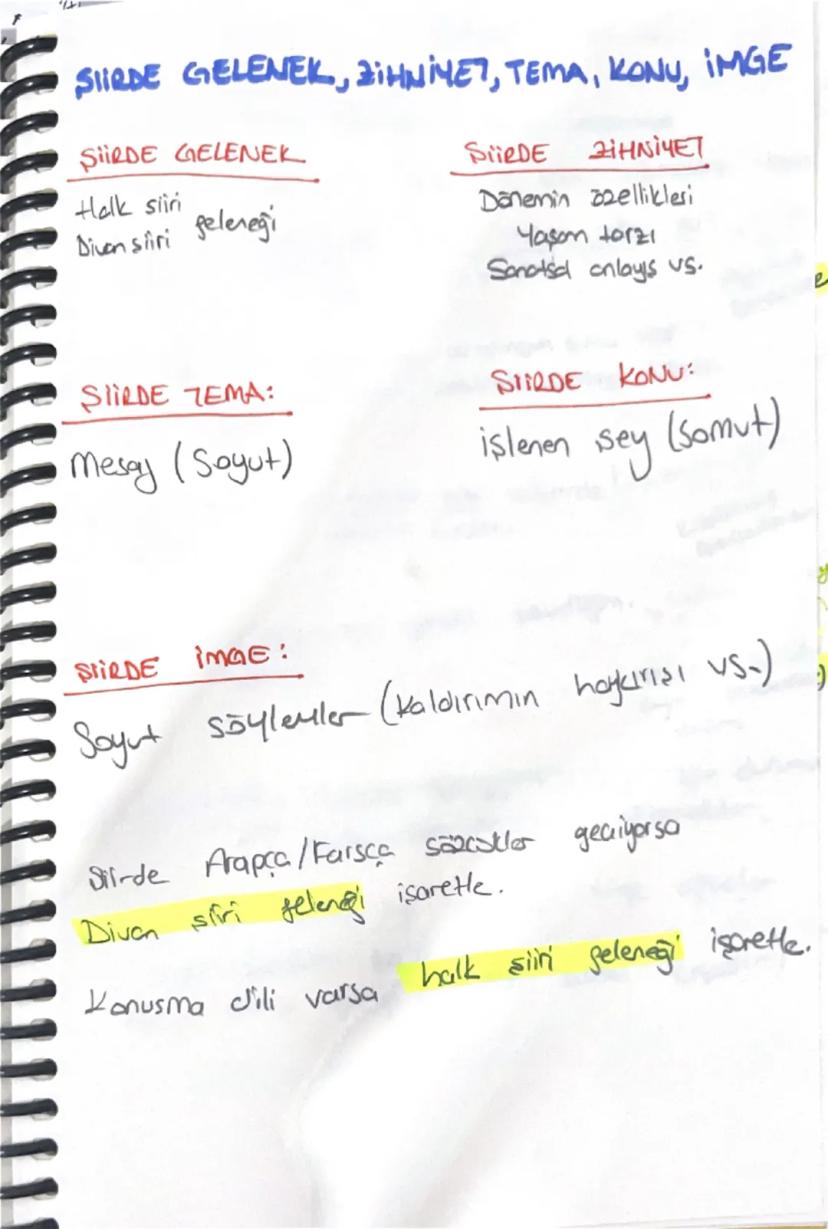 ŞİİRDE GELENEK, ZİHNİYET, TEMA, KONU, İMGE
ŞİİRDE GELENEK
Halk şiiri
Divan şiiri geleneği
ŞİİRDE ZİHNİYET
Dönemin özellikleri
Yaşam tarzı
Sanatsal anlayış vs.
ŞİİRDE TEMA:
Mesaj (Soyut)
ŞİİRDE KONU:
işlenen şey (Somut)
ŞİİRDE İMGE:
Soyut söylemler (Kaldırımın haykırışı vs.)
Şiirde Arapça/Farsça sözcükler geçiyorsa
Divan şiiri geleneği işaretle.
Konuşma dili varsa halk şiiri geleneği işaretle.